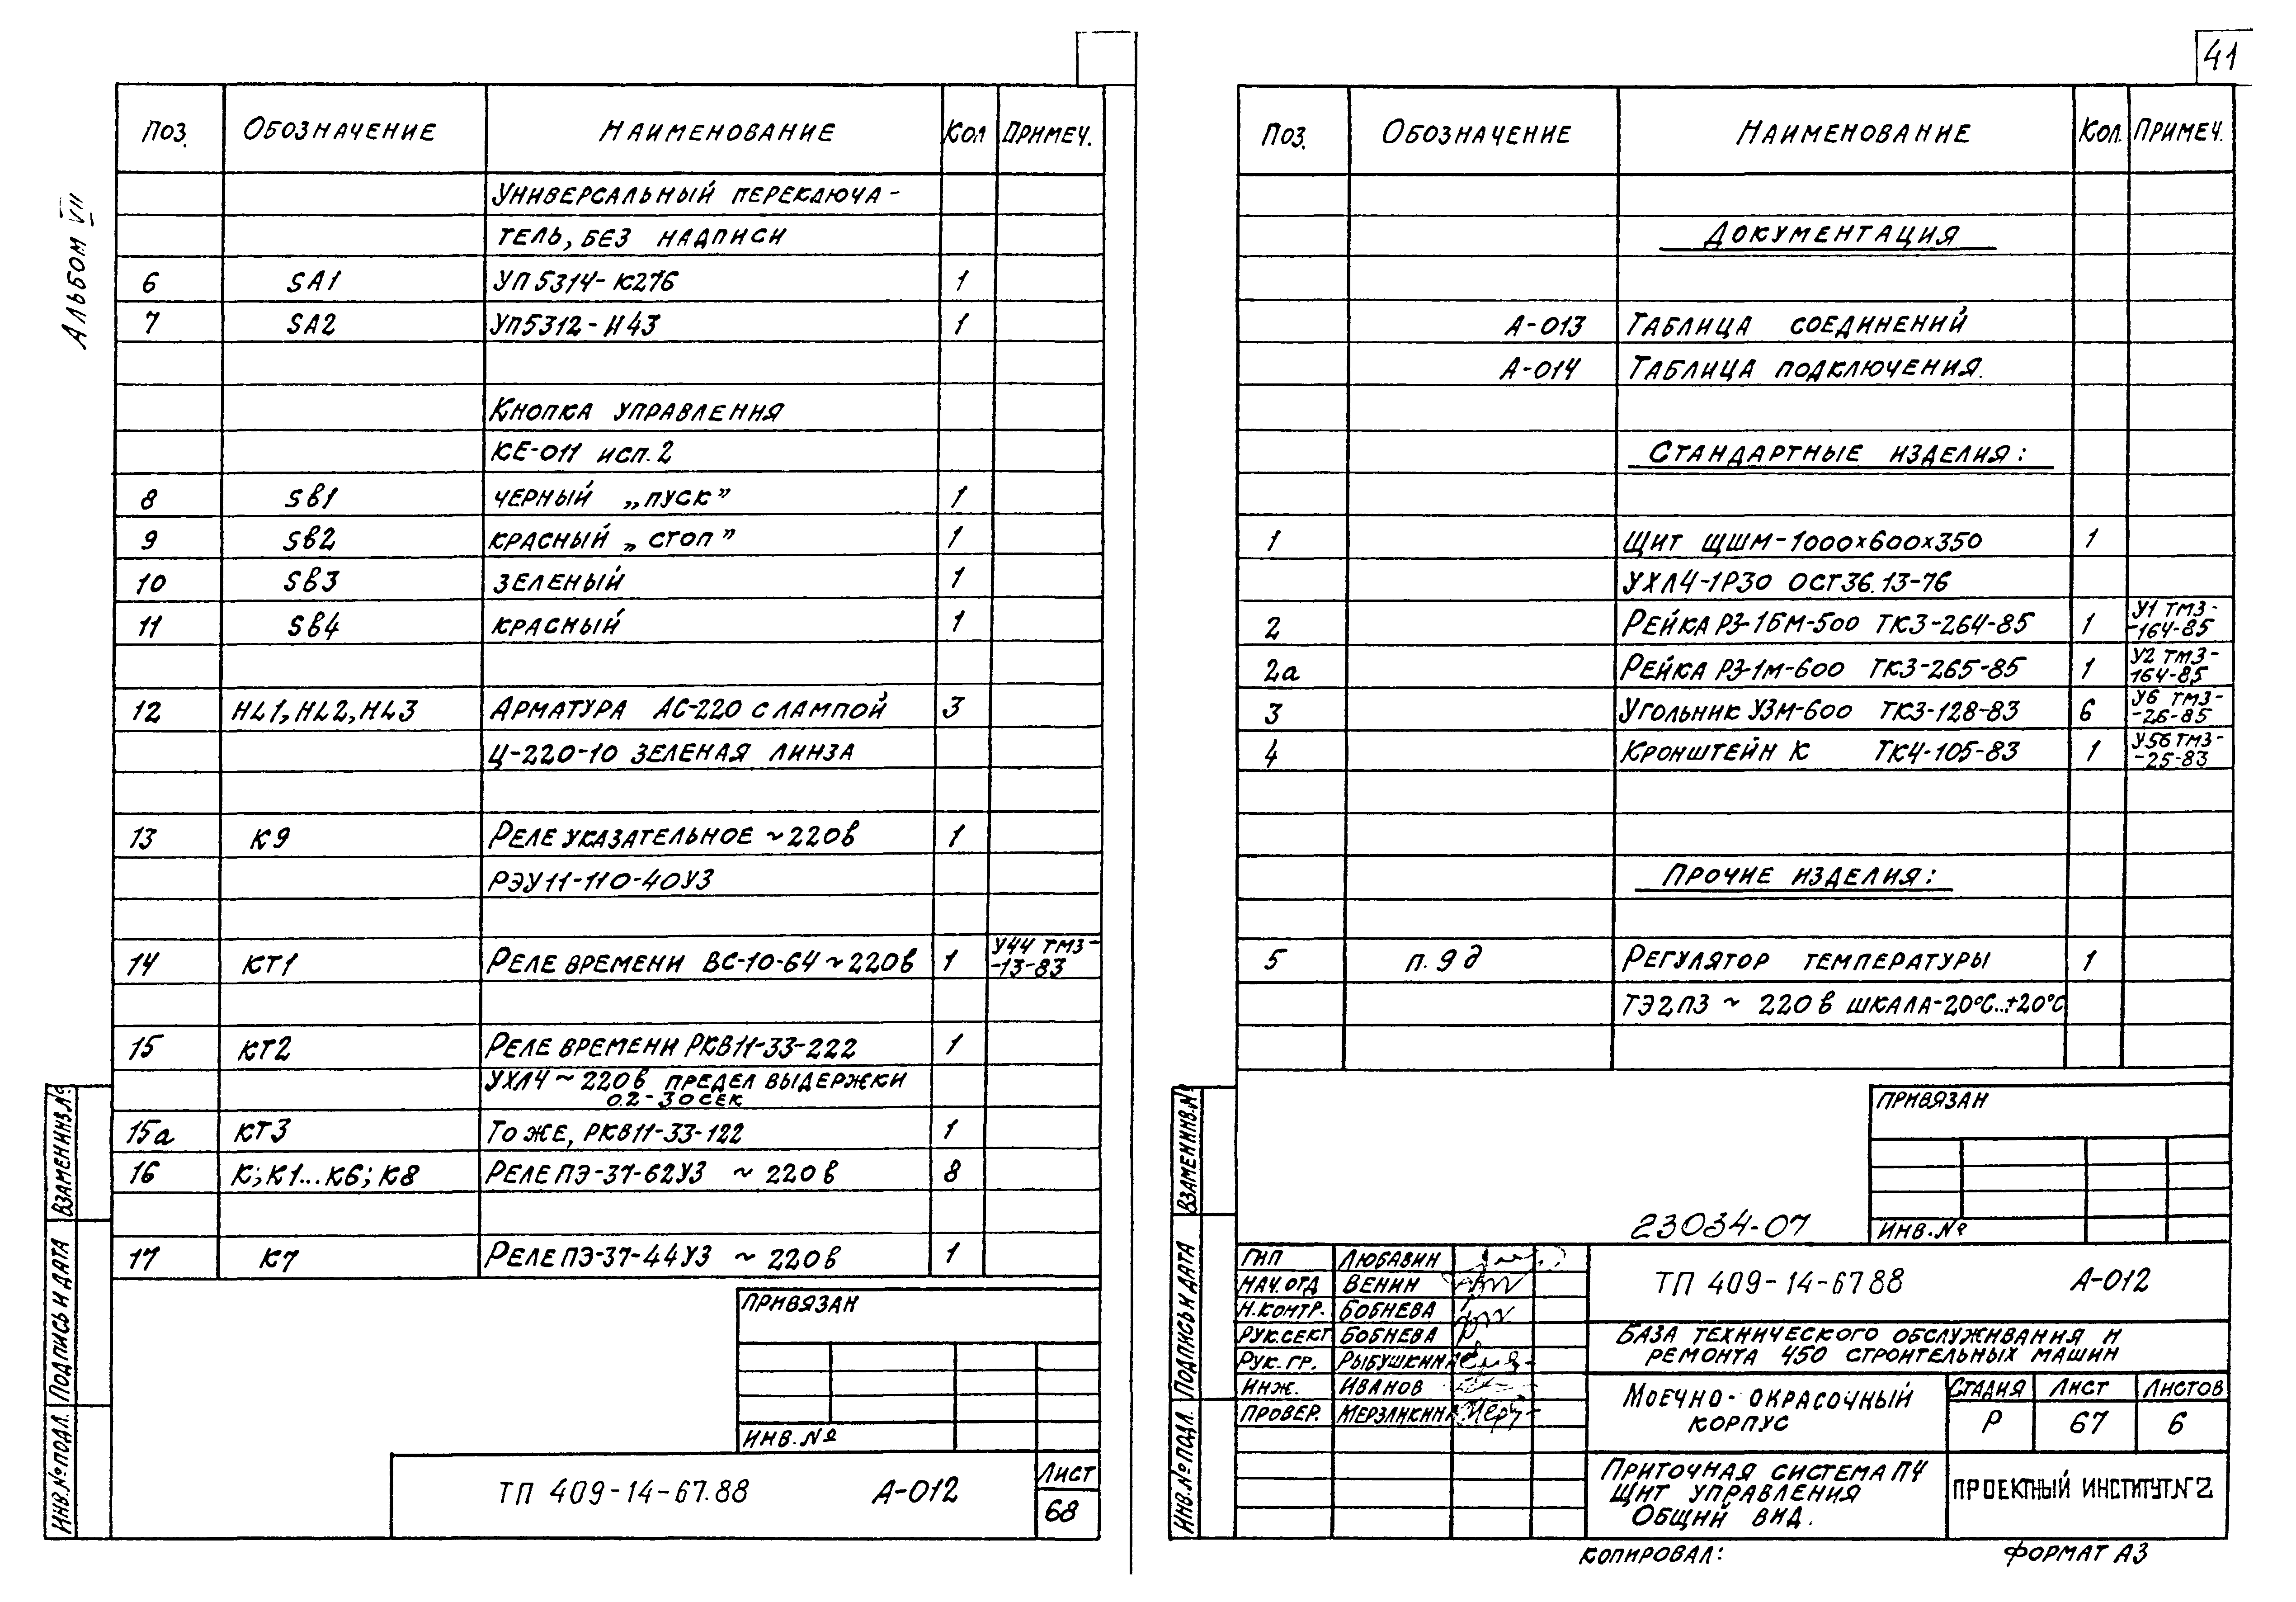 Альбом VII
Поз. Обозначение Наименование Кол Примеч.
Универсальный переключа-
тель, без надписи
6 SA1 УП5314-К276 1
7 SA2 УП5312-Н43 1
Кнопка управления
КЕ-011 исп. 2
8 SB1 черный „пуск” 1
9 SB2 красный „стоп” 1
10 SB3 зеленый 1
11 SB4 красный 1
12 HL1, HL2, HL3 Арматура АС-220 с лампой 3
Ц-220-10 зеленая линза
13 К9 Реле указательное ~220В 1
РЭУ11-110-40У3
14 КТ1 Реле времени ВС-10-64 ~220В 1 У44 ТМ3-
-13-83
15 КТ2 Реле времени РКВ11-33-222 1
УХЛ4 ~220В предел выдержки
0.2-30 сек
15а КТ3 То же, РКВ11-33-122 1
16 К; К1...К6; К8 Реле ПЭ-37-62У3 ~220В 8
17 К7 Реле ПЭ-37-44У3 ~220В 1
Привязан
Инв.№
ТП 409-14-67.88 А-012
Лист
68
Инв.№ подл. Подпись и дата Взамен инв.№
41
Поз. Обозначение Наименование Кол. Примеч.
Документация
А-013 Таблица соединений
А-014 Таблица подключения.
Стандартные изделия:
1 Щит ЩШМ-1000х600х350 1
УХЛ4-1Р30 ОСТ36.13-76
2 Рейка РЗ-1БМ-500 ТК3-264-85 1 У1 ТМ3-
-164-85
2а Рейка РЗ-1М-600 ТК3-265-85 1 У2 ТМ3-
164-85
3 Угольник УЗМ-600 ТК3-128-83 6 У6 ТМ3-
-26-85
4 Кронштейн К ТК4-105-83 1 У56 ТМ3-
-25-83
Прочие изделия:
5 п. 9д Регулятор температуры 1
ТЭ2П3 ~ 220В шкала-20°С...+20°С
Привязан
Инв.№
23034-07
ГИП Любавин
Нач.отд Венин
Н.контр. Бобнева
Рук.сект Бобнева
Рук.гр. Рыбушкина
Инж. Иванов
Провер. Мерзликина
ТП 409-14-67.88 А-012
База технического обслуживания и
ремонта 450 строительных машин
Моечно-окрасочный
корпус
Стадия Лист Листов
Р 67 6
Приточная система П4
Щит управления
Общий вид.
Проектный институт №2
Инв.№ подл. Подпись и дата Взамен инв.№
Копировал: Формат А3